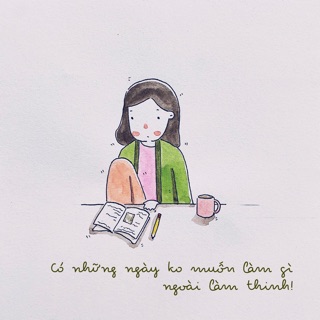 Có những ngày ko muốn làm gì
ngoài làm thinh!